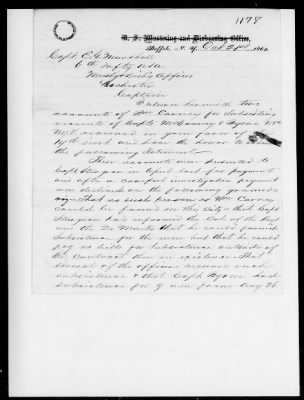 1178
U. S. Mustering and Disbursing Office,
Buffalo, N. Y. Oct 21st 186
Capt. C. G. Marshall
6th Infty USA
Rochester
Captain
I return herewith two
accounts of Wm Carney for subsistence
accounts of Capts &
N.Y.V. in your favor of
19th inst and have the honor to
the following statement
These accounts were presented to
Capt in April last for payment
and after a careful investigation payment
was declined on the following grounds
That no such person as Wm Carney
could be found in the City & that Capt
had informed the Col. of the Regt
and the Qr Master that he could furnish
subsistence for the men but that he could
pay no bills for subsistence outside of
the Contract then in existence That
several of the officers received such
subsistence & that Capt had
subsistence for 9 men from Aug 26